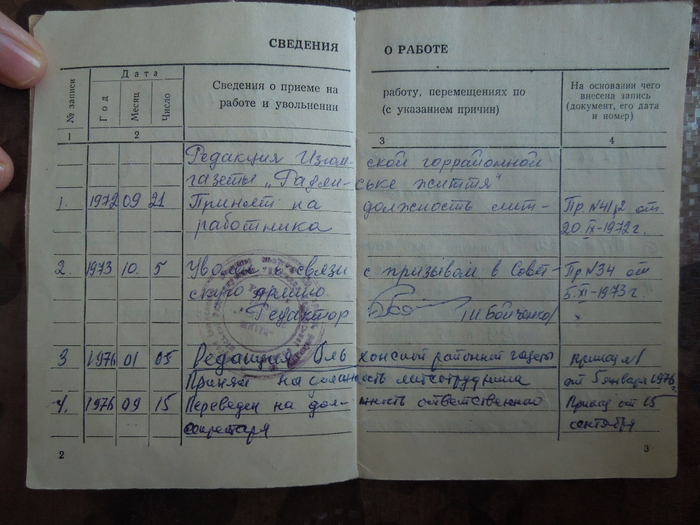 СВЕДЕНИЯ О РАБОТЕ
№ записи
Дата
Год
Месяц
Число
Сведения о приеме на работу, перемещениях по
работе и увольнении (с указанием причин)
На основании чего
внесена запись
(документ, его дата
и номер)
1 2 3 4
Редакция Изюмской горрайонной
газеты „Радянське життя"
1. 1972 09 21 Принят на должность лит- Пр. №41 §2 от
работника 20 IX-1972 г.
2. 1973 10. 5 Уволен в связи с призывом в Совет- Пр №34 от
скую армию 5 XI-1973 г.
Редактор /Ш. Бойченко/
3 1976 01 05 Редакция районной газеты Приказ №1
Принят на должность литсотрудника от 5 января 1976
4. 1976 09 15 Переведен на должность ответственного Приказ от 15
секретаря сентября
2 3